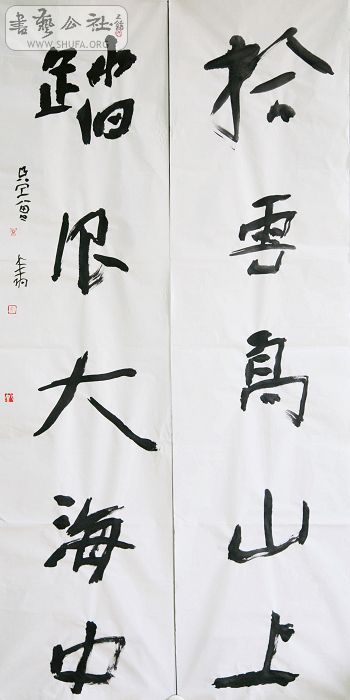 書藝公社
WWW.SHUFA.ORG
拾雲高山上
踏浪大海中